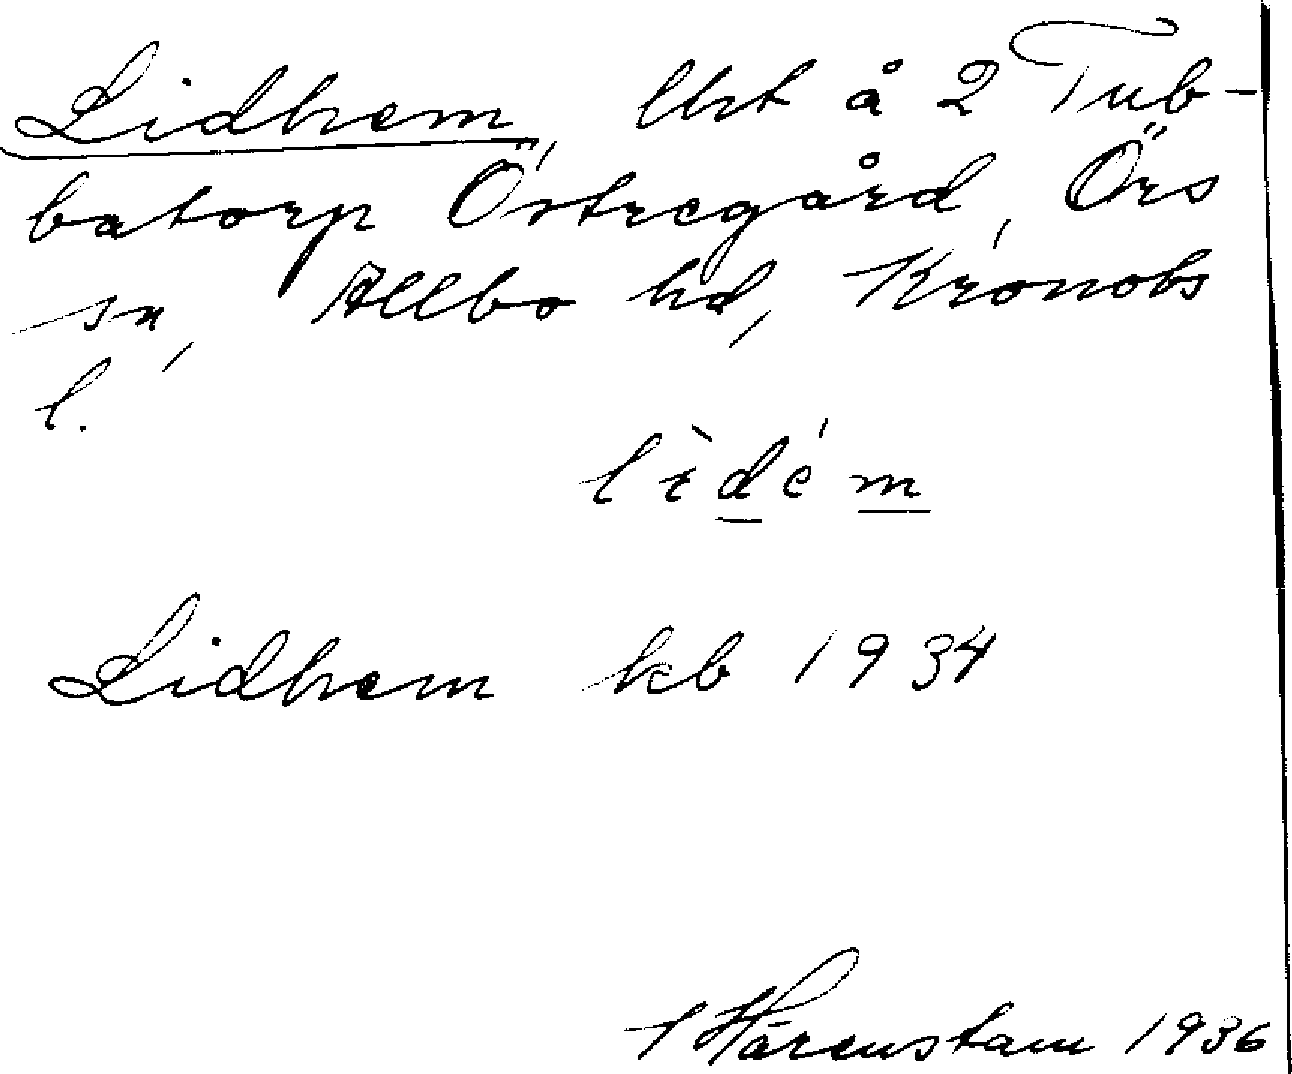 Lidhem, lht å 2 Tub-
batorp Östregård, Örs
sn, Allbo hd, Kronobs
l.
lìdém
Lidhem kb 1934
Härenstam 1936